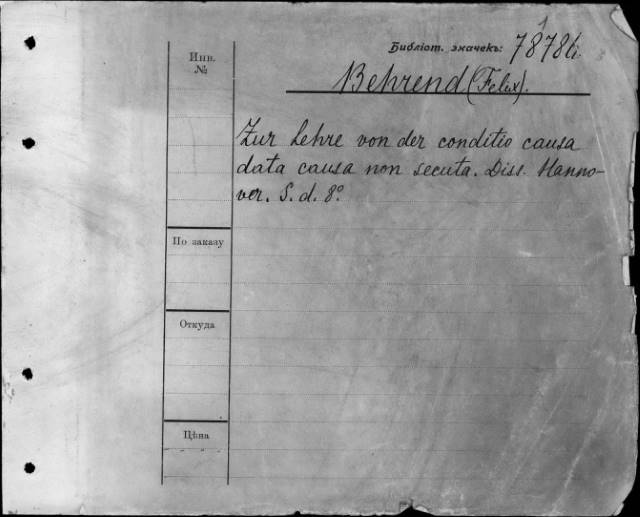 Библіот. значекъ: 78786.
Инв.
№
Behrend (Felix).
Zur Lehre von der conditio causa
data causa non secuta. Diss. Hanno-
ver. S. d. 8°.
По заказу
Откуда
Цѣна